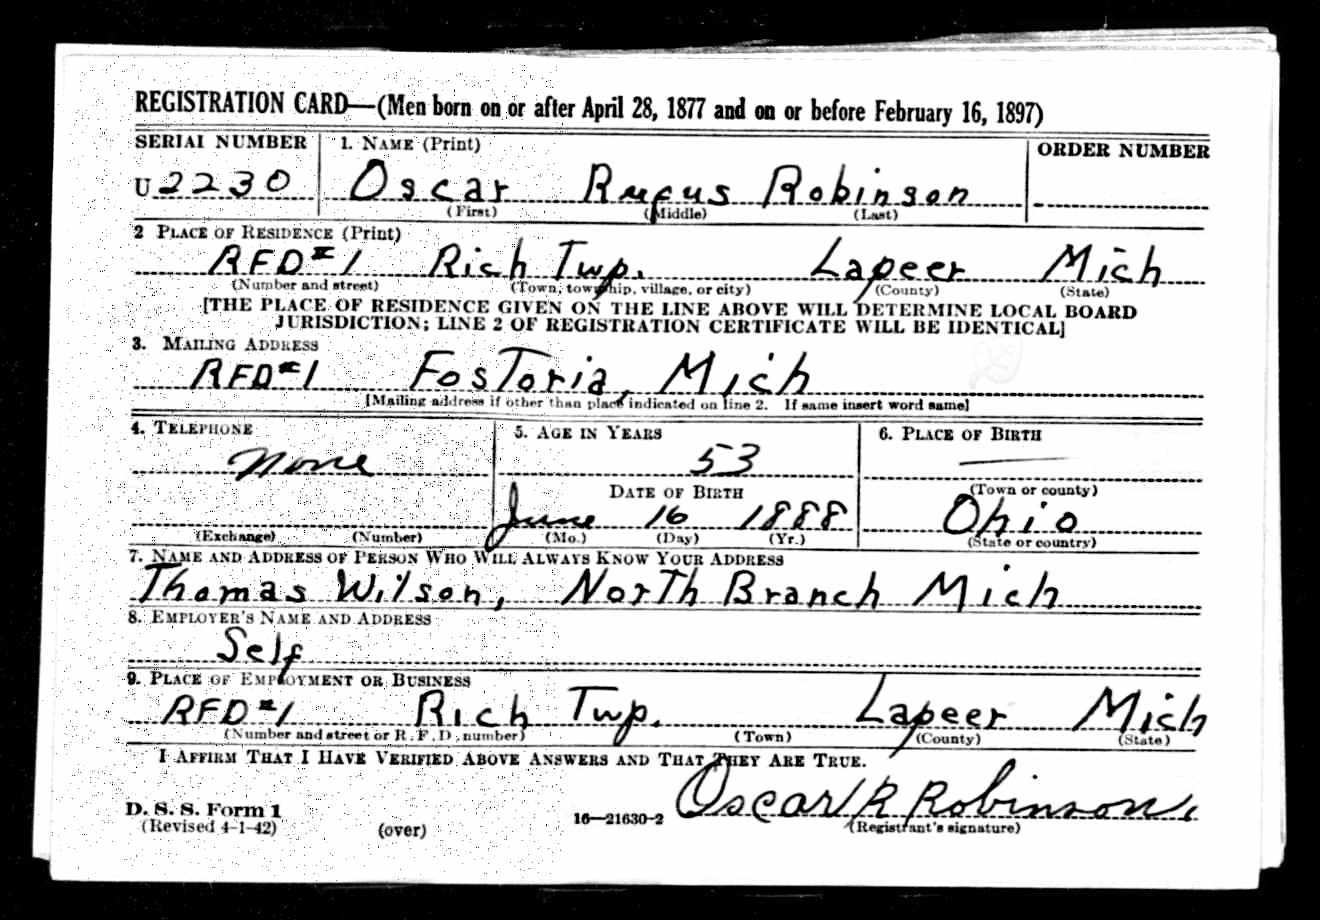 REGISTRATION CARD—(Men born on or after April 28, 1877 and on or before February 16, 1897)
SERIAL NUMBER 1. NAME (Print) ORDER NUMBER
U 2230 Oscar Rufus Robinson
(First) (Middle) (Last)
2 PLACE OF RESIDENCE (Print)
RFD #1 Rich Twp. Lapeer Mich
(Number and street) (Town, township, village, or city) (County) (State)
[THE PLACE OF RESIDENCE GIVEN ON THE LINE ABOVE WILL DETERMINE LOCAL BOARD
JURISDICTION; LINE 2 OF REGISTRATION CERTIFICATE WILL BE IDENTICAL]
3. MAILING ADDRESS
RFD #1 Fostoria, Mich
[Mailing address if other than place indicated on line 2. If same insert word same]
4. TELEPHONE 5. AGE IN YEARS 6. PLACE OF BIRTH
None 53 —
DATE OF BIRTH (Town or county)
June 16 1888 Ohio
(Exchange) (Number) (Mo.) (Day) (Yr.) (State or country)
7. NAME AND ADDRESS OF PERSON WHO WILL ALWAYS KNOW YOUR ADDRESS
Thomas Wilson, North Branch Mich
8. EMPLOYER'S NAME AND ADDRESS
Self
9. PLACE OF EMPLOYMENT OR BUSINESS
RFD #1 Rich Twp. Lapeer Mich
(Number and street or R. F. D. number) (Town) (County) (State)
I AFFIRM THAT I HAVE VERIFIED ABOVE ANSWERS AND THAT THEY ARE TRUE.
Oscar R Robinson.
D. S. S. Form 1
(Revised 4-1-42) (over) 16—21630-2 (Registrant's signature)